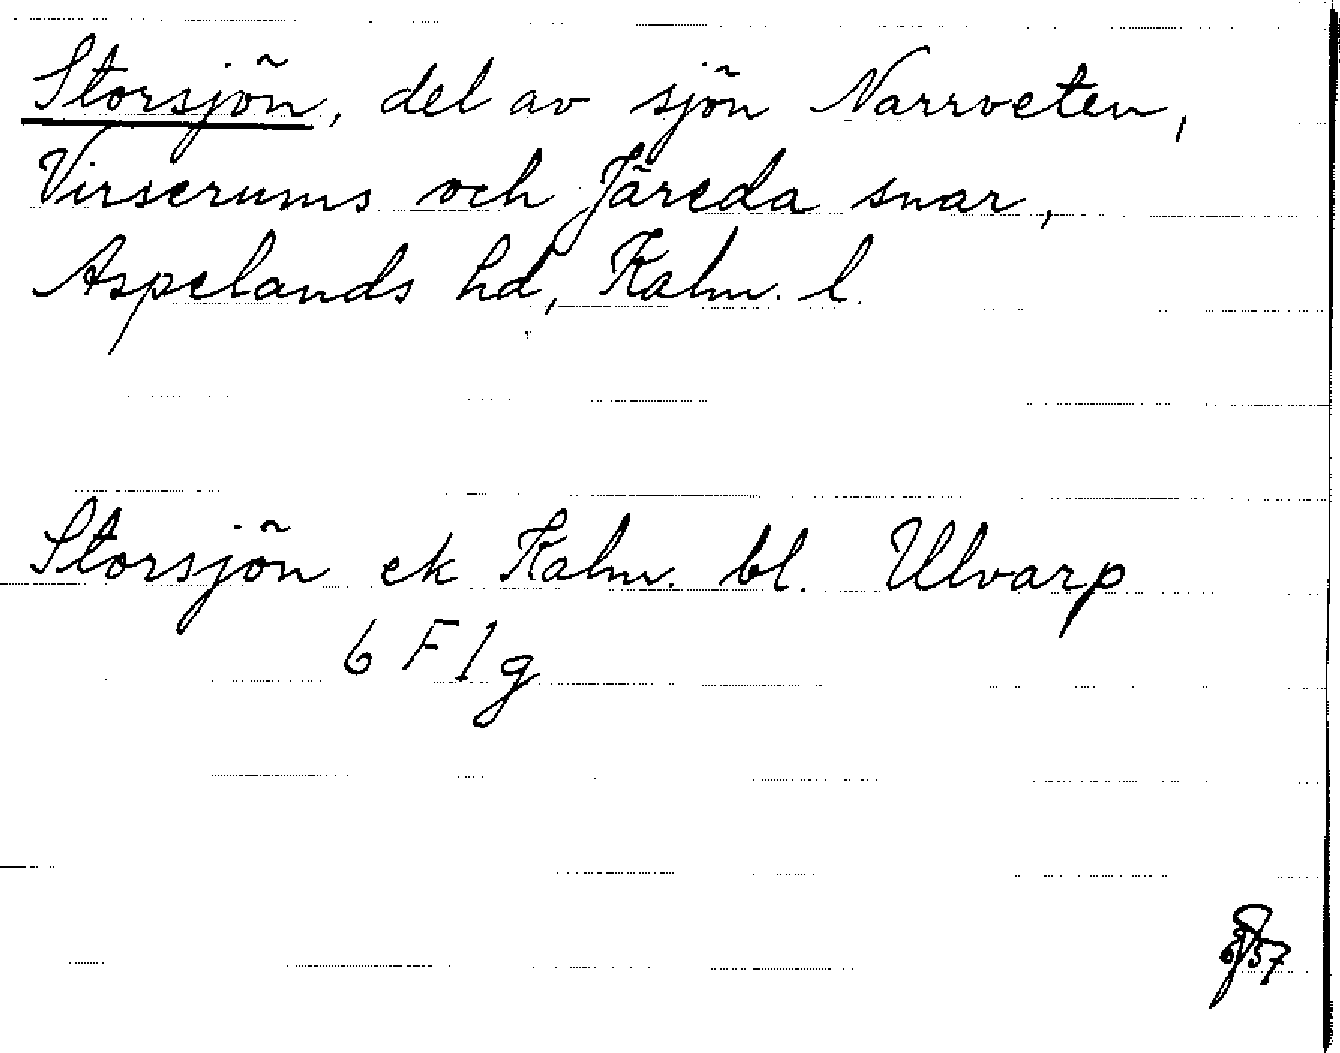 Storsjön, del av sjön Narrveten,
Virserums och Järeda snar,
Aspelands hd, Kalm. l.
Storsjön ek Kalm. bl. Ulvarp
6 F 1 g